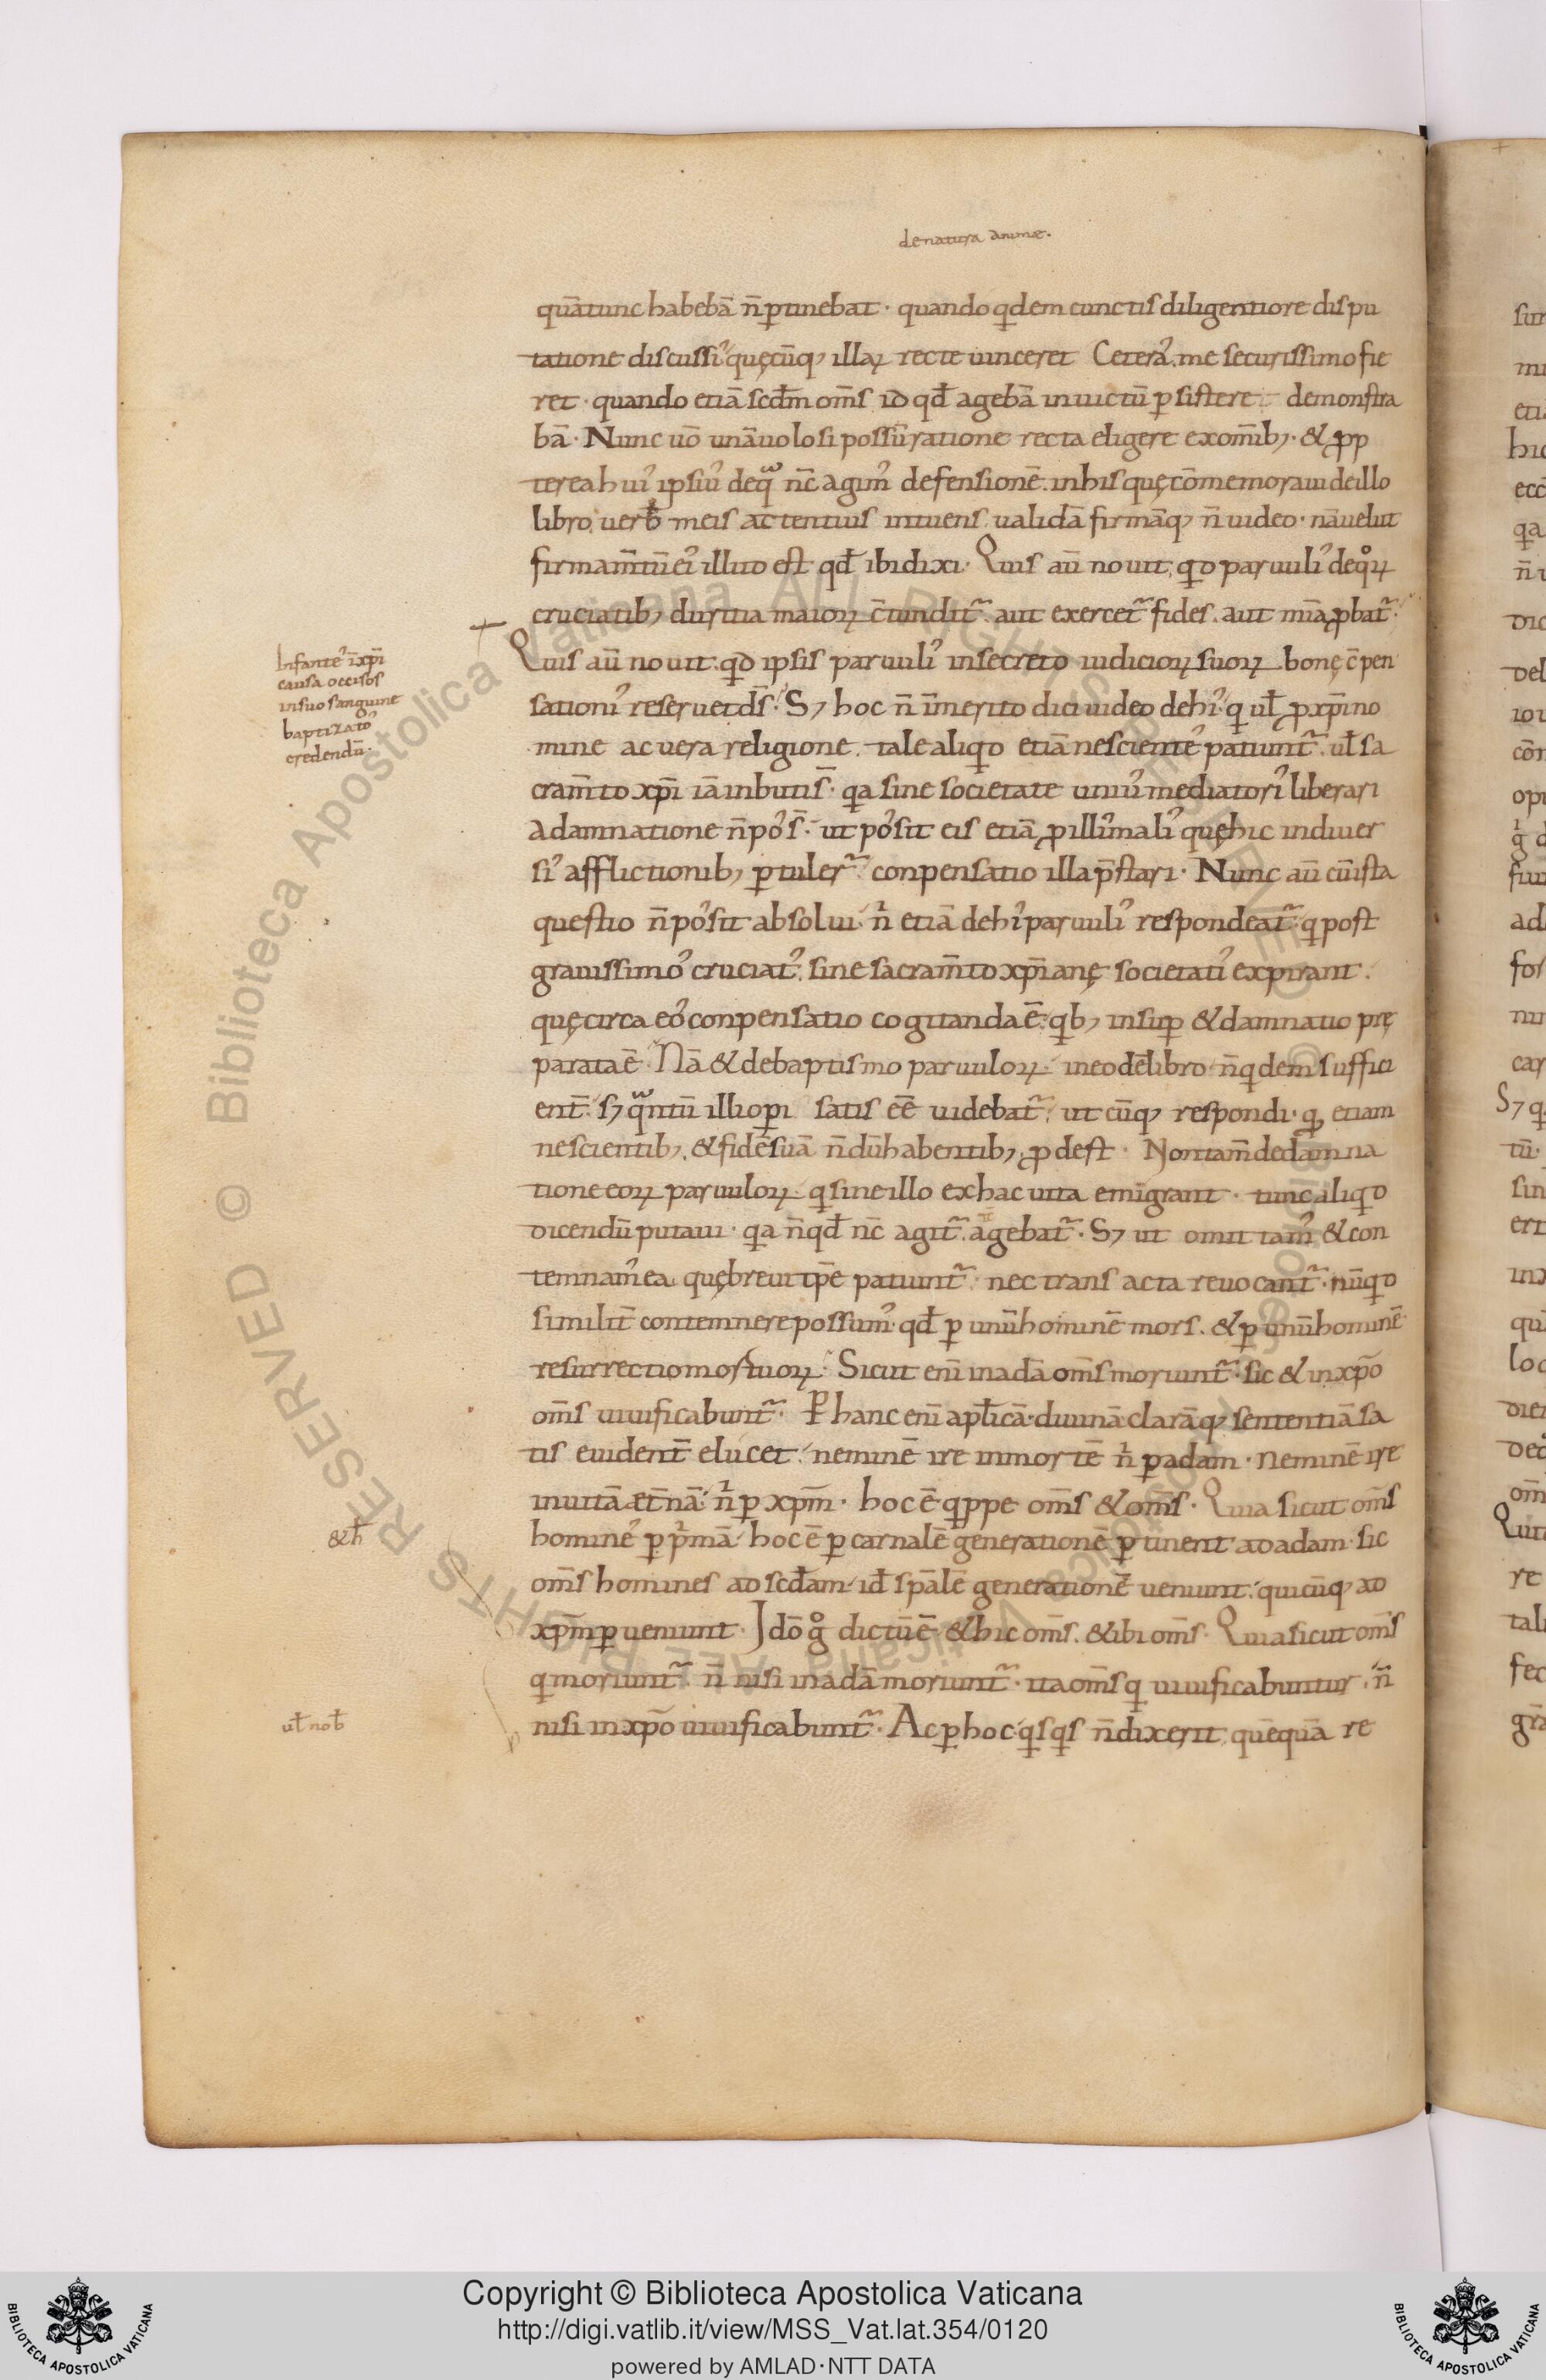 de natura animæ.
quā tunc habebā n̄ ꝑtinebat · quando qdem cunctis diligentiore dispu
tatione discussi᾽ quęcūq; illaꝝ recte uinceret Cetera᾽. me securissimo fie
ret · quando etiā scd̄m om̄s id qd̄ agebā inuictū ꝑsistere demonstra
bā · Nunc uō unā uolo si possū ratione recta eligere ex om̄ib; · & ꝓp
terea hui᾽ ipsiu᾽ de q nc̄ agim᾽ defensionē. in his quę cōmemoraui de illo
libro uerb̄ meis ac tentius intuens ualidā firmāq; n̄ uideo · nā uelut
firmam̄tū ei᾽ illud est qd̄ ibi dixi · Quis aū nouit, qd paruuli᾽ de qͦꝝ
cruciatib; duritia maioꝝ c̄tundit᷑. aut exercet᷑ fides. aut mīa ꝓbat᷑.
Quis aū nouit. qd ipsis paruuli᾽ in secreto iudicioꝝ suoꝝ bonę c̄pen
Infante᾽ ī xp̄i
causa occisos
in suo sanguine
baptizato᾽
credendū·
sationi᾽ reseruet ds̄. S; hoc n̄ īmerito dici uideo de hi᾽. q ul̄ ꝓ xp̄i no
mine ac uera religione. tale aliqd etiā nesciente᾽ patiunt᷑. ul̄ sa
cram̄to xp̄i iā inbutis̄. qa sine societate uniu᾽ mediatori᾽ liberari
a damnatione n̄ po᾽s̄. ut po᾽sit eis etiā ꝓ illi᾽ mali᾽ quę hic in diuer
si᾽ afflictionib; ꝑtuler᷑ conpensatio illa p̄stari · Nunc aū cū ista
questio n̄ po᾽sit absolui. n̍ etiā de hi᾽ paruuli᾽ respondeat᷑. q post
grauissimo᾽ cruciat᾽. sine sacram̄to xp̄ianę societati᾽ expirant.
quę circa eo᾽ conpensatio cogitanda ē. qb; insuꝑ & damnatio prę
parata ē Nā & de baptismo paruuloꝝ. in eodē libro n̄ qdem suffici
ent̄. s; qntū illi oꝑi satis ēē uidebat᷑. ut cūq; respondi. q ꝓ etiam
nescientib;. & fidē suā n̄dū habentib;, ꝓdest · Non tam̄ de damna
tione eoꝝ paruuloꝝ. q sine illo ex hac uita emigrant · tunc aliqd
dicendū putaui · qa n̄ qd̄ nc̄ agit᷑. agebat᷑. S; ut omittam᾽ & con
temnam᾽ ea quę breui tp̄e patiunt᷑. nec trans acta reuocant᷑. nūqd
similit̄ contemnere possum᾽. qd̄ ꝑ unū hominē mors. & ꝑ unū hominē
resurrectio mortuoꝝ. Sicut enī in adā om̄s moriunt᷑. sic & in xp̄o
om̄s uiuificabunt᷑. Ꝑ hanc enī apl̄icā. diuinā clarāq; sententiā sa
tis euident̄ elucet. neminē ire in mortē n̍ ꝑ adam · neminē ire
in uitā æt̄nā. n̍ ꝑ xp̄m · hoc ē qppe om̄s & om̄s · Quia sicut om̄s
&h̄
homine᾽ ꝑ p̍mā hoc ē ꝑ carnalē generationē ꝑtinent ad adam. sic
om̄s homines ad scd̄am id̄ sp̄alē generationē ueniunt. quicūq; ad
xp̄m ꝑueniunt · Idō gͦ dictū ē. & hic om̄s. & ibi om̄s · Quia sicut om̄s
q moriunt᷑. n̄ nisi in adā moriunt᷑. ita om̄s q uiuificabuntur. n̄
ul̄ nob̄
nisi in xp̄o uiuificabunt᷑. Ac ꝑ hoc qsqs n̄ dixerit quēquā re
Copyright © Biblioteca Apostolica Vaticana
http://digi.vatlib.it/view/MSS_Vat.lat.354/0120
powered by AMLAD·NTT DATA